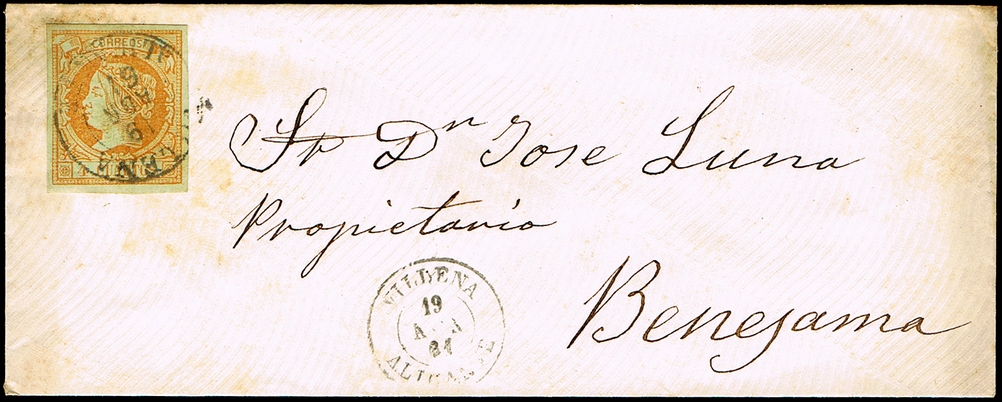 CORREOS
Sr Dn Jose Luna
Propietario
Benejama
VILLENA
19
61
ALICANTE